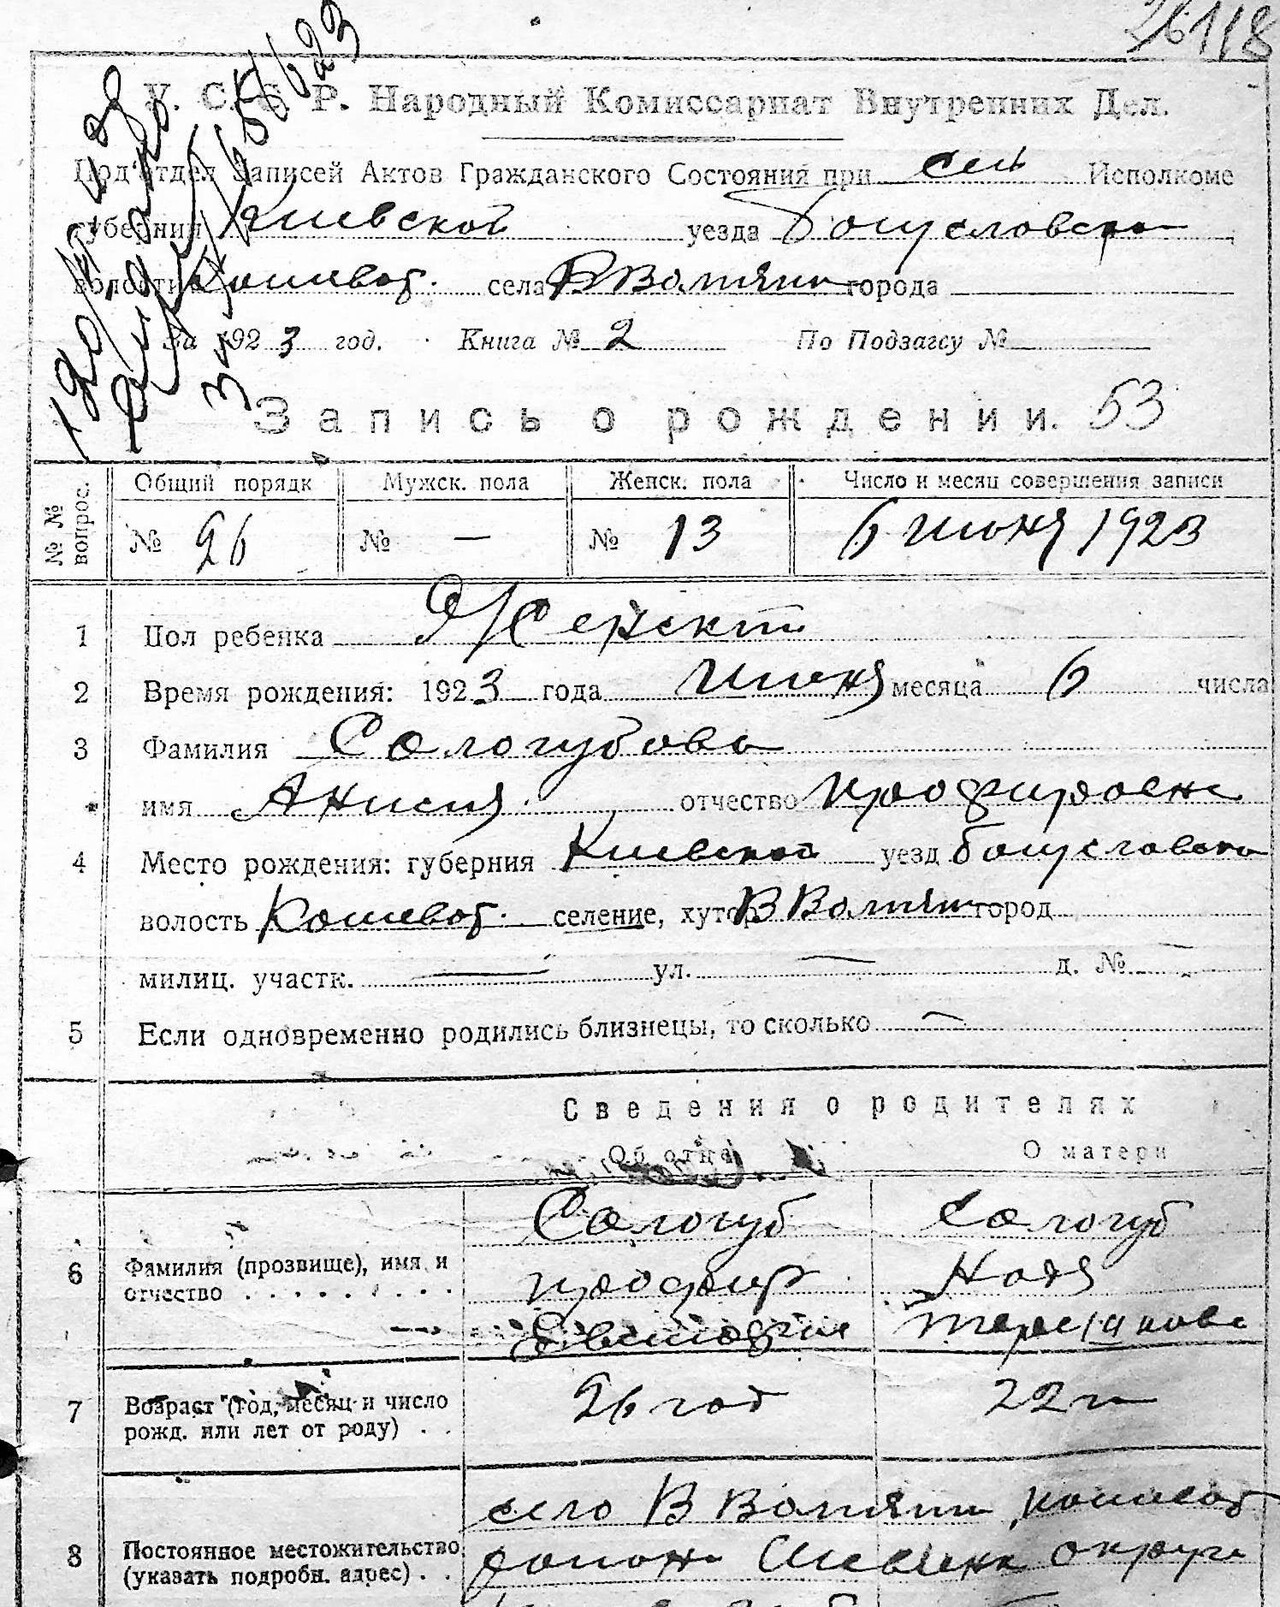 26 118
У. С. С. Р. Народный Комиссариат Внутренних Дел.
Под'отдел Записей Актов Гражданского Состояния при сель Исполкоме
губернии Киевской уезда Богуславско
волости Кошеват. села В Вотяни города
За 1923 год. Книга № 2 По Подзагсу №
Запись о рождении. 53
№ № вопрос.
Общий порядк Мужск. пола Женск. пола Число и месяц совершения записи
№ 26 № — № 13 6 июня 1923
1 Пол ребенка Женский
2 Время рождения: 1923 года Июня месяца 6 числа
3 Фамилия Сологубова
имя Анисия отчество
4 Место рождения: губерния Киевской уезд Богуславско
волость Кошеват. селение, хутор В Вотяни город
милиц. участк. — ул. — д. № —
5 Если одновременно родились близнецы, то сколько —
Сведения о родителях
Об отце О матери
6 Фамилия (прозвище), имя и отчество Сологуб Сологуб
Надя
7 Возраст (год, месяц и число рожд. или лет от роду) 26 год 22 г
8 Постоянное местожительство (указать подробн. адрес) село В Вотяни Кошеват
район округи